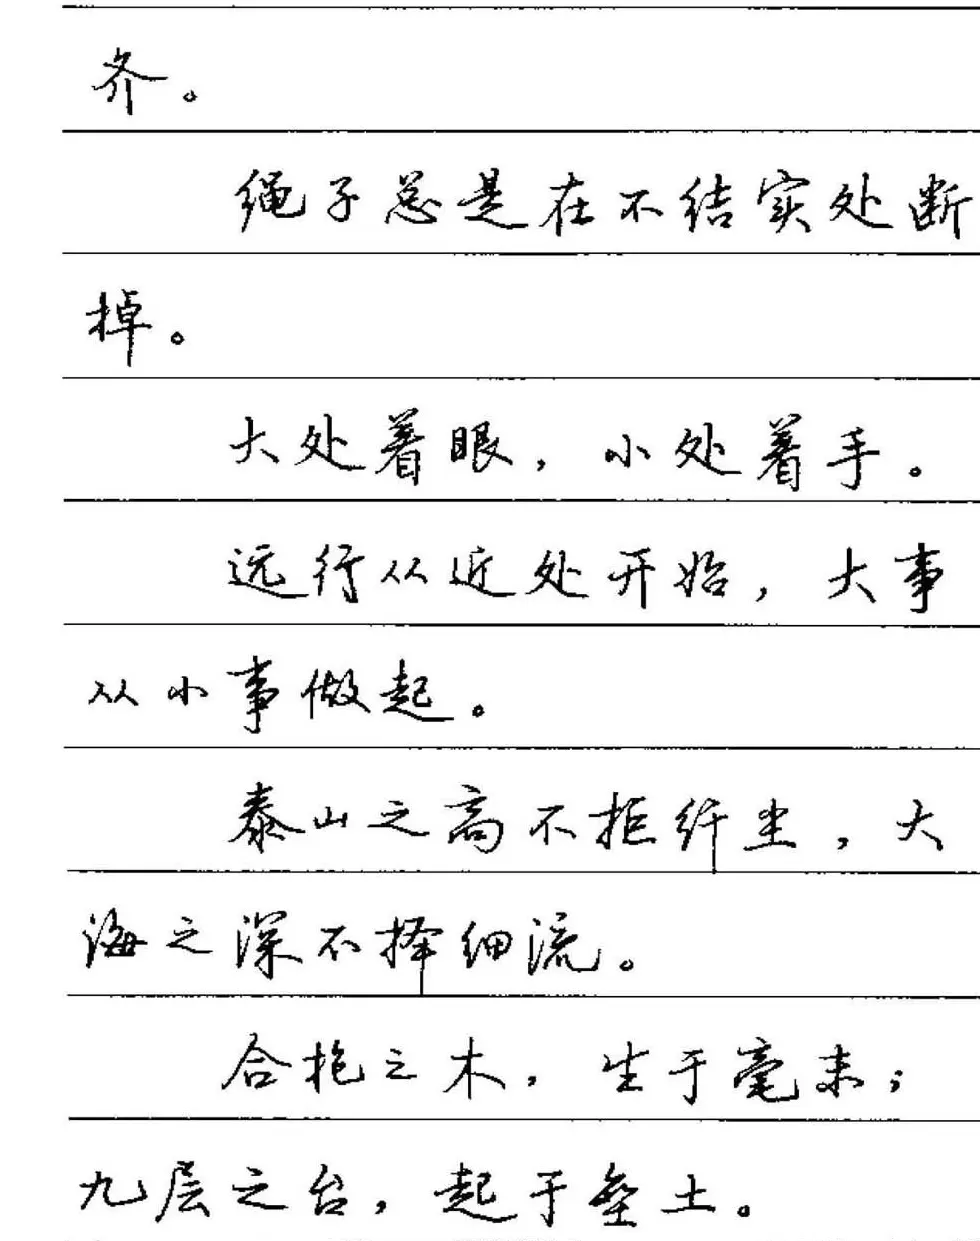 齐。
绳子总是在不结实处断
掉。
大处着眼，小处着手。
远行从近处开始，大事
从小事做起。
泰山之高不拒纤尘，大
海之深不择细流。
合抱之木，生于毫末；
九层之台，起于垒土。